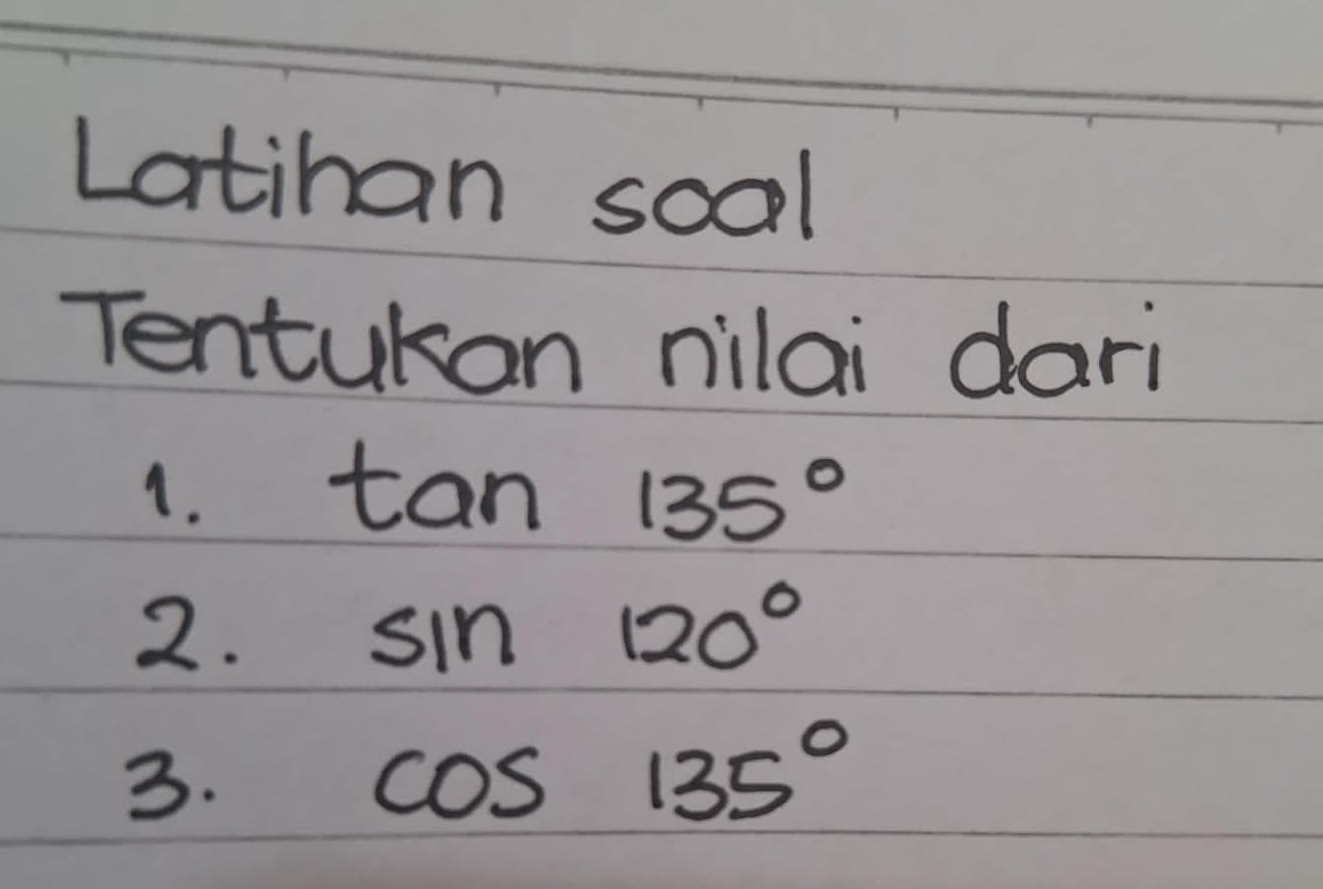 Latihan soal
Tentukan nilai dari
1. tan 135°
2. sin 120°
3. cos 135°